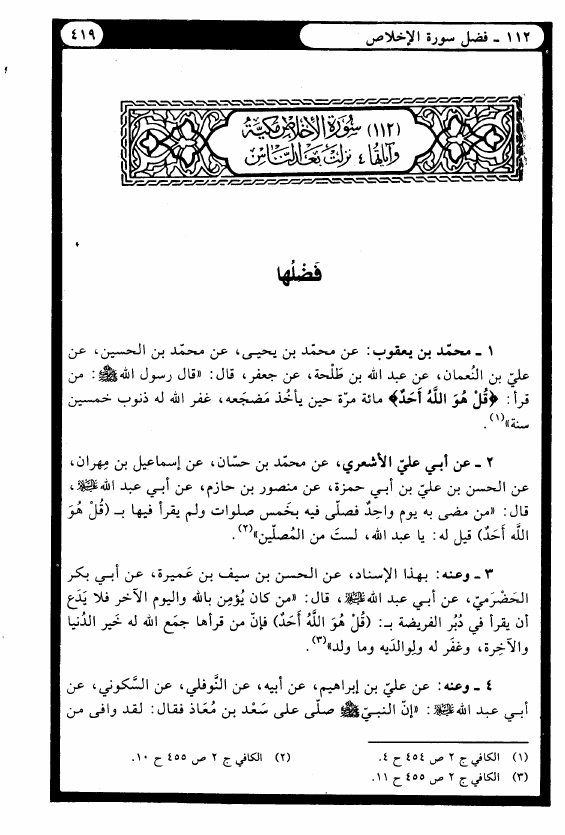 ١١٢ ـ فضل سورة الإخلاص
٤١٩
(١١٢) سورة الإخلاص مكية
وآياتها ٤ نزلت بعد الناس
فَضْلُها
١ ـ محمّد بن يعقوب: عن محمّد بن يحيى، عن محمّد بن الحسين، عن
عليّ بن النُعمان، عن عبد الله بن طَلْحة، عن جعفر، قال: «قال رسول الله ﷺ: من
قرأ: ﴿قُلْ هُوَ اللَّهُ أَحَدٌ﴾ مائة مرّة حين يأخُذ مَضجَعه، غفر الله له ذنوب خمسين
سنة»(١).
٢ ـ عن أبي عليّ الأشعري، عن محمّد بن حسّان، عن إسماعيل بن مِهران،
عن الحسن بن عليّ بن أبي حمزة، عن منصور بن حازم، عن أبي عبد الله عليه السلام،
قال: «من مضى به يوم واحِدٌ فصلّى فيه بخَمس صلوات ولم يقرأ فيها بـ (قُلْ هُوَ
اللَّه أَحَدٌ) قيل له: يا عبد الله، لستَ من المُصلّين»(٢).
٣ ـ وعنه: بهذا الإسناد، عن الحسن بن سيف بن عَميرة، عن أبي بكر
الحَضْرَميّ، عن أبي عبد الله عليه السلام، قال: «من كان يُؤمِن بالله واليوم الآخر فلا يَدَع
أن يقرأ في دُبُر الفريضة بـ: (قُلْ هُوَ اللَّهُ أَحَدٌ) فإنّ من قرأها جمَع الله له خَير الدُنيا
والآخِرة، وغفَر له ولِوالدَيه وما ولد»(٣).
٤ ـ وعنه: عن عليّ بن إبراهيم، عن أبيه، عن النَوفلي، عن السَكوني، عن
أبي عبد الله عليه السلام: «إنّ النبيّ ﷺ صلّى على سَعْد بن مُعَاذ فقال: لقد وافى من
(١) الكافي ج ٢ ص ٤٥٤ ح ٤.
(٢) الكافي ج ٢ ص ٤٥٥ ح ١٠.
(٣) الكافي ج ٢ ص ٤٥٥ ح ١١.